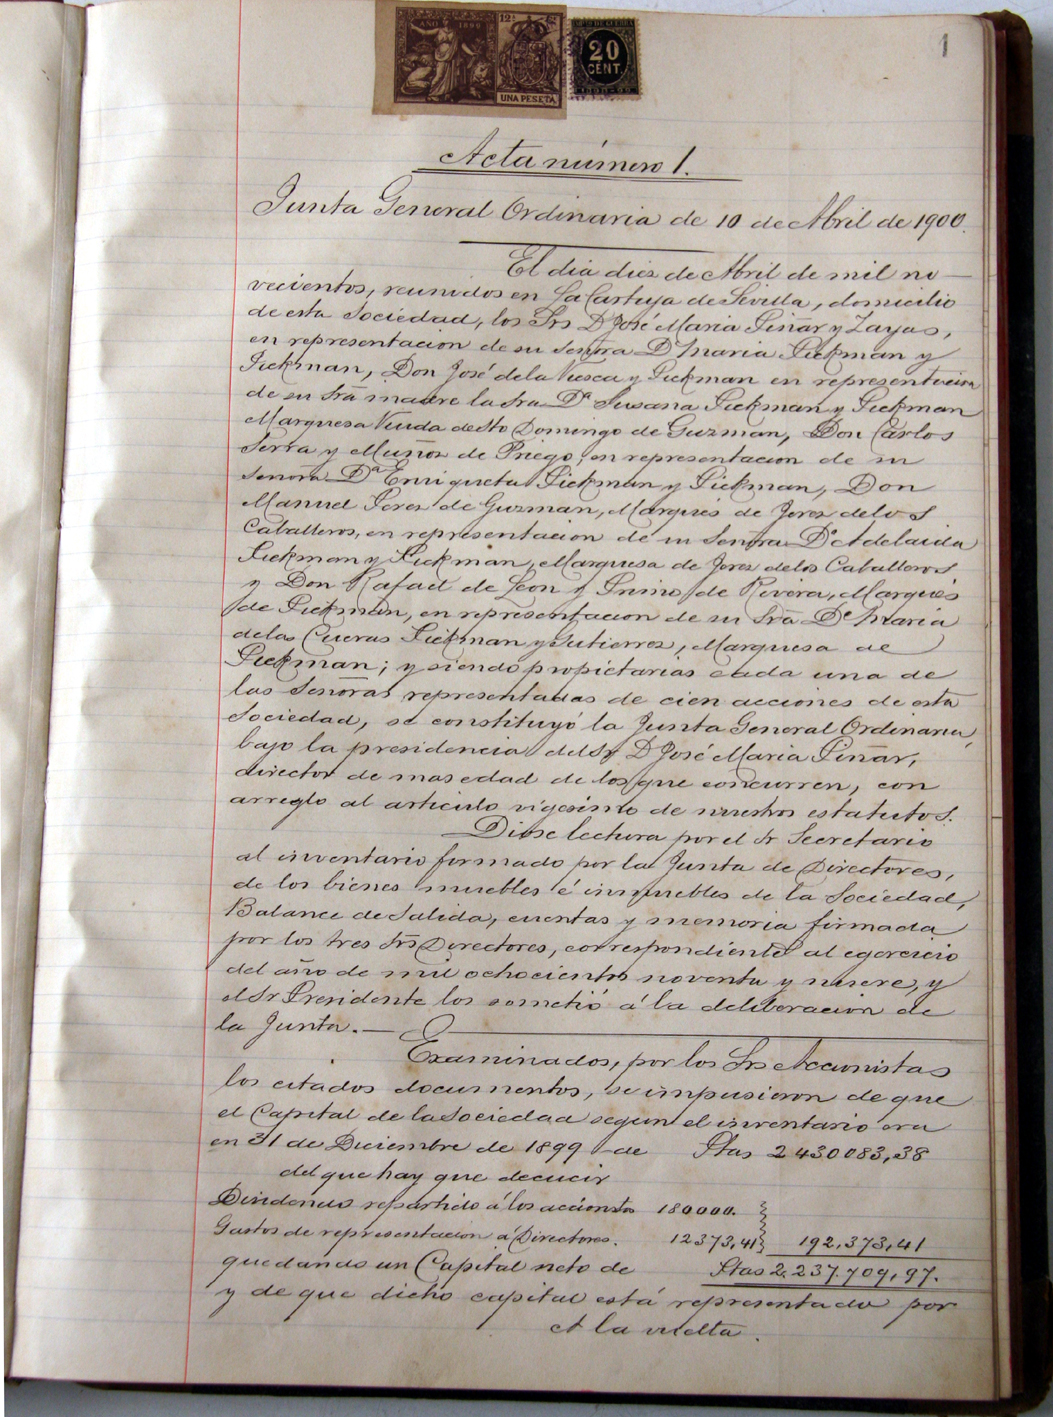 1
AÑO 1899
12ª
UNA PESETA
20
CENT.
Acta número 1.
Junta General Ordinaria de 10 de Abril de 1900.
El dia diez de Abril de mil no-
vecientos, reunidos en La Cartuja de Sevilla, domicilio
de esta Sociedad, los Srs D José Maria Piñar y Zayas,
en representacion de su Señora Dª Maria Pickman y
Pickman, Don José de la Viesca y Pickman en representacion
de su Srã madre la Sra Dª Susana Pickman y Pickman
Marquesa Viuda de Sto Domingo de Guzman, Don Carlos
Serra y Muñoz de Priego, en representacion de su
señora Dª Enriqueta Pickman y Pickman, Don
Manuel Perez de Guzman, Marqués de Jerez de los
Caballeros, en representacion de su Señora Dª Adelaida
Pickman y Pickman, Marquesa de Jerez de los Caballeros
y Don Rafael de Leon y Primo de Rivera, Marqués
de Pickman, en representacion de su Srã Dª Maria
de las Cuevas Pickman y Gutierrez, Marquesa de
Pickman; y siendo propietarias cada una de
las Señoras representadas de cien acciones de esta
Sociedad, se constituyó la Junta General Ordinaria,
bajo la presidencia del Sr D José Maria Piñar,
director de mas edad de los que concurren, con
arreglo al articulo vigesimo de nuestros estatutos.
Diose lectura por el Sr Secretario
al inventario formado por la Junta de Directores,
de los bienes muebles é inmuebles de la Sociedad,
Balance de Salida, cuentas y memoria firmada
por los tres Srs Directores, correspondiente al egercicio
del año de mil ochocientos noventa y nueve, y
el Sr Presidente los sometió á la deliberacion de
la Junta.—
Examinados, por los Srs Accionistas
los citados documentos, se impusieron de que
el Capital de la Sociedad segun el inventario era
en 31 de Diciembre de 1899 de Ptas 2430083,38
del que hay que deducir
Dividendo repartido á los accionistas 180000.
Gastos de representacion á Directores. 12373,41 192,373,41
quedando un Capital neto de Ptas 2,237.709,97.
y de que dicho capital está representado por
A la vuelta.